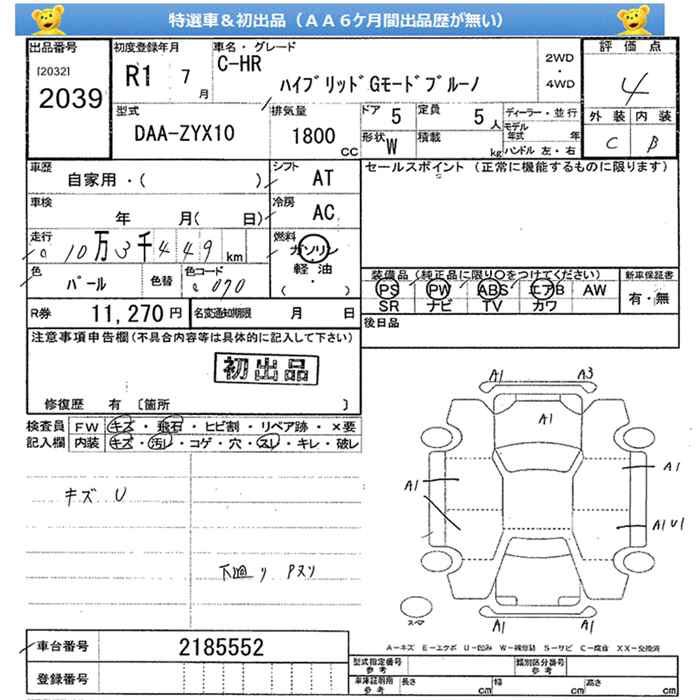 特選車＆初出品（ＡＡ６ケ月間出品歴が無い）
出品番号
[2032]
2039
初度登録年月
R1 7 月
車名・グレード
C-HR
ハイブリッドGモードブルーノ
2WD
・
4WD
評価点
4
外装 内装
C B
型式
DAA-ZYX10
排気量
1800 CC
ドア 5
定員 5 人
形状 W
積載 kg
ディーラー・並行
モデル年式 年
ハンドル 左・右
車歴
自家用・( )
シフト AT
セールスポイント（正常に機能するものに限ります）
車検
年 月( 日)
冷房 AC
走行
10万3千449 km
燃料
ガソリン
軽油
( ・ )
色
パール
色替
色コード
070
装備品（純正品に限り○をつけてください）
PS PW ABS エアB AW
SR ナビ TV カワ
新車保証書
有・無
R券 11,270円
名変通知期限 月 日
後日品
注意事項申告欄(不具合内容等は具体的に記入して下さい)
初出品
修復歴 有 〔箇所 〕
検査員
記入欄
FW キズ・飛石・ヒビ割・リペア跡・×要
内装 キズ・汚レ・コゲ・穴・スレ・キレ・破レ
キズ U
下廻り Pヌリ
A1 A3
A1
A1
A1
A1U1
スペア
A-キズ E-エクボ U-凹み W-補修跡 S-サビ C-腐食 XX-交換済
車台番号 2185552
登録番号
型式指定番号 参考
類別区分番号 参考
車庫証明用 参考
長さ cm 幅 cm 高さ cm